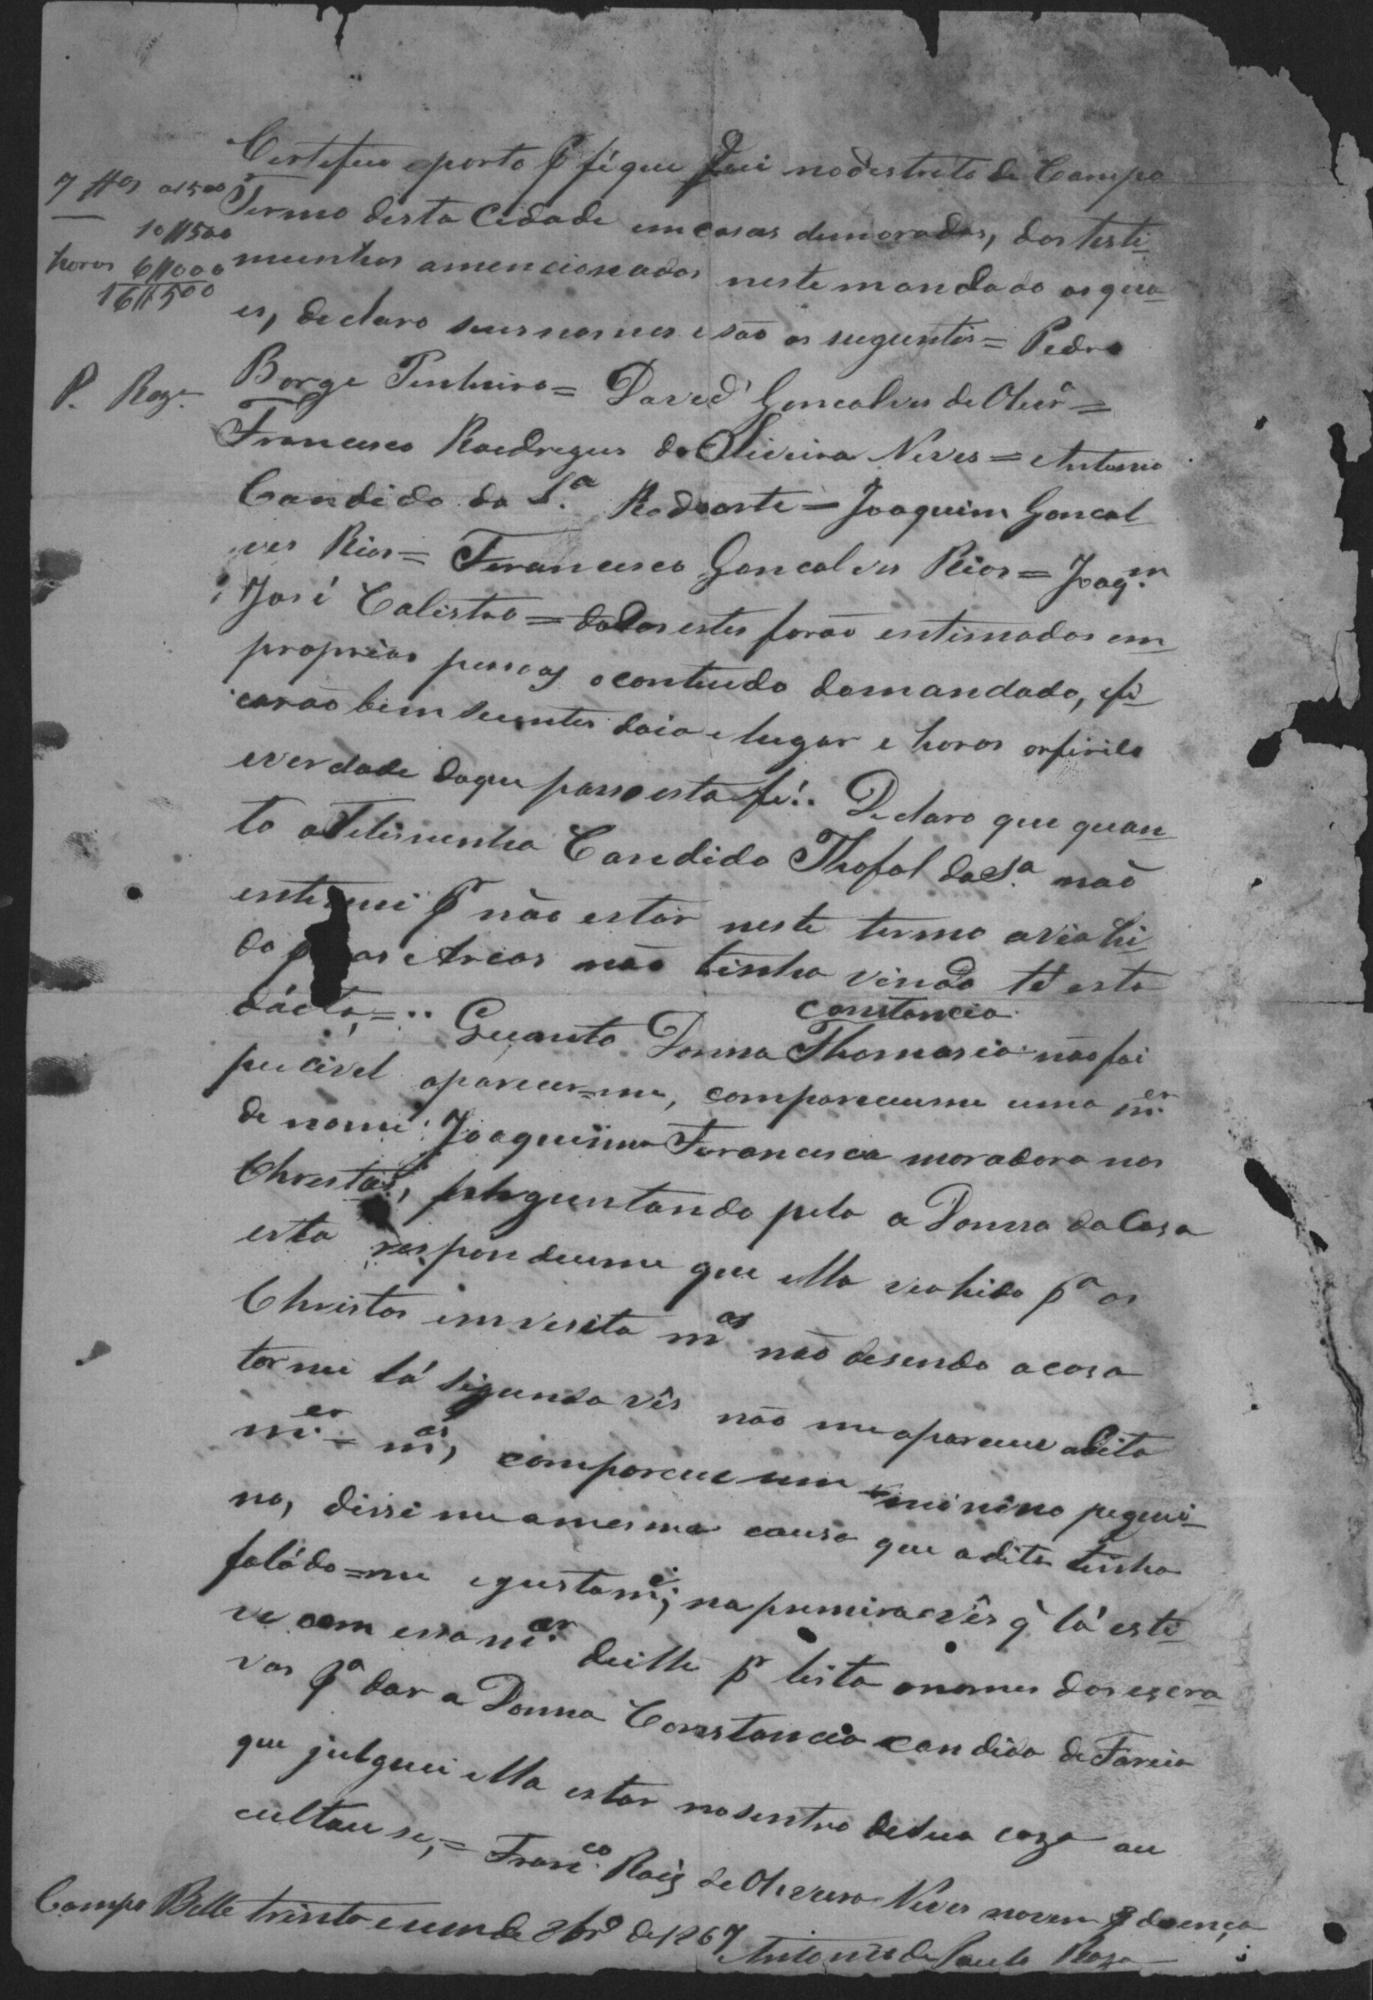 Certifico e porto p fé que fui no destrito de Campo
Termo desta Cidade em casas de moradas, das testi-
munhas amencionados neste mandado os qua-
es, declaro seus nomes e são os seguintes = Pedro
7 ff.os a 1500
10$500
horas 6$000
16$500
P. Roza
Borge Pinheiro = David Gonçalves de Olivr.ª =
Francisco Roedregues de Oliveira Neves = Antonio
Candido da S.ª Rodoarte = Joaquim Goncal
ves Rios = Francisco Goncalves Rios = Joaq.m
José Calistro = todos estes forão entimados em
proprias pessoas o contiudo do mandado, e fi-
carão bem scientes do dia e lugar e horas
e verdade do que passo esta fé. Declaro que quan-
to a Tetimunha Candido Thofol da S.ª não
entimei p.r não estar neste termo
do as Areas não tinha vindo té esta
dácta, = Quanto Donna Thomasia não foi
Constancia
pucivel aparecer-me, compareceume uma m.er
de nome Joaquina Francisca moradora nos
Christas, perguntando pela a Donna da Casa
esta respondeume que ella sahido p.ª os
Christos em vesita m.as não desendo a casa
tornei lá segunda vês não me apareceu a dita
m.er = m.as, compareceu um minino pequi-
no, disse me a mesma cousa que a dita tinha
faládo-me e justam.e; na primeira vês q' lá esti-
ve com essa m.er deilhe p.r lista o nomes dos escra
vos p.ª dar a Donna Constancia Candida de Faria
que julguei ella estar no sentro de sua caza ou
cultou se, = Fran.co Roiz de Oliveira Neves p doença
Campo Bello trinta e um de 8br.o de 1867 Antonio de Paula Roza